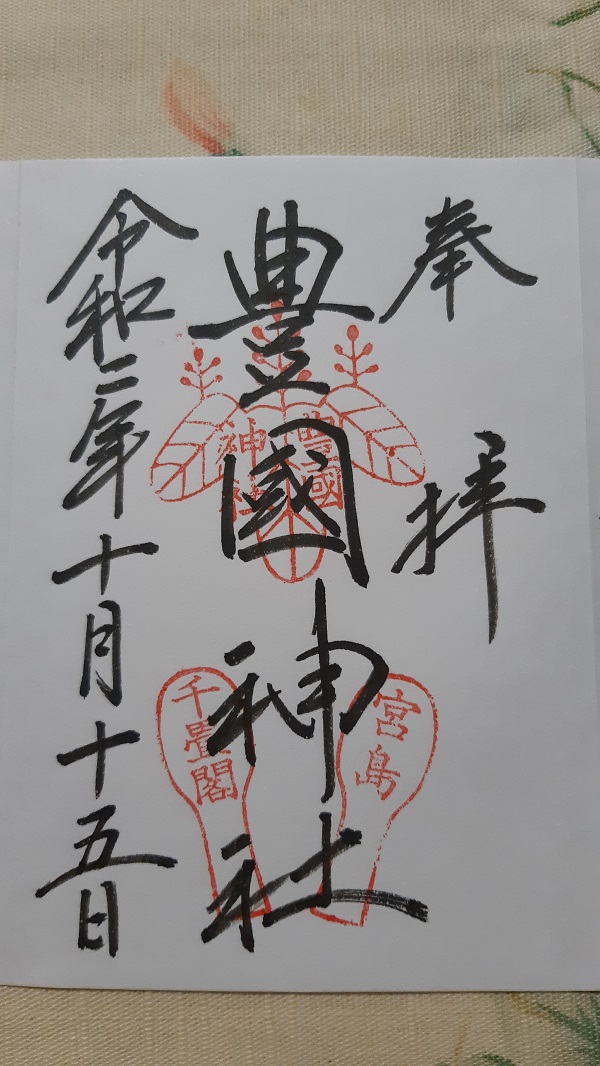 奉拝
豊國神社
令和二年十月十五日
豊國
神社
宮島
千畳閣